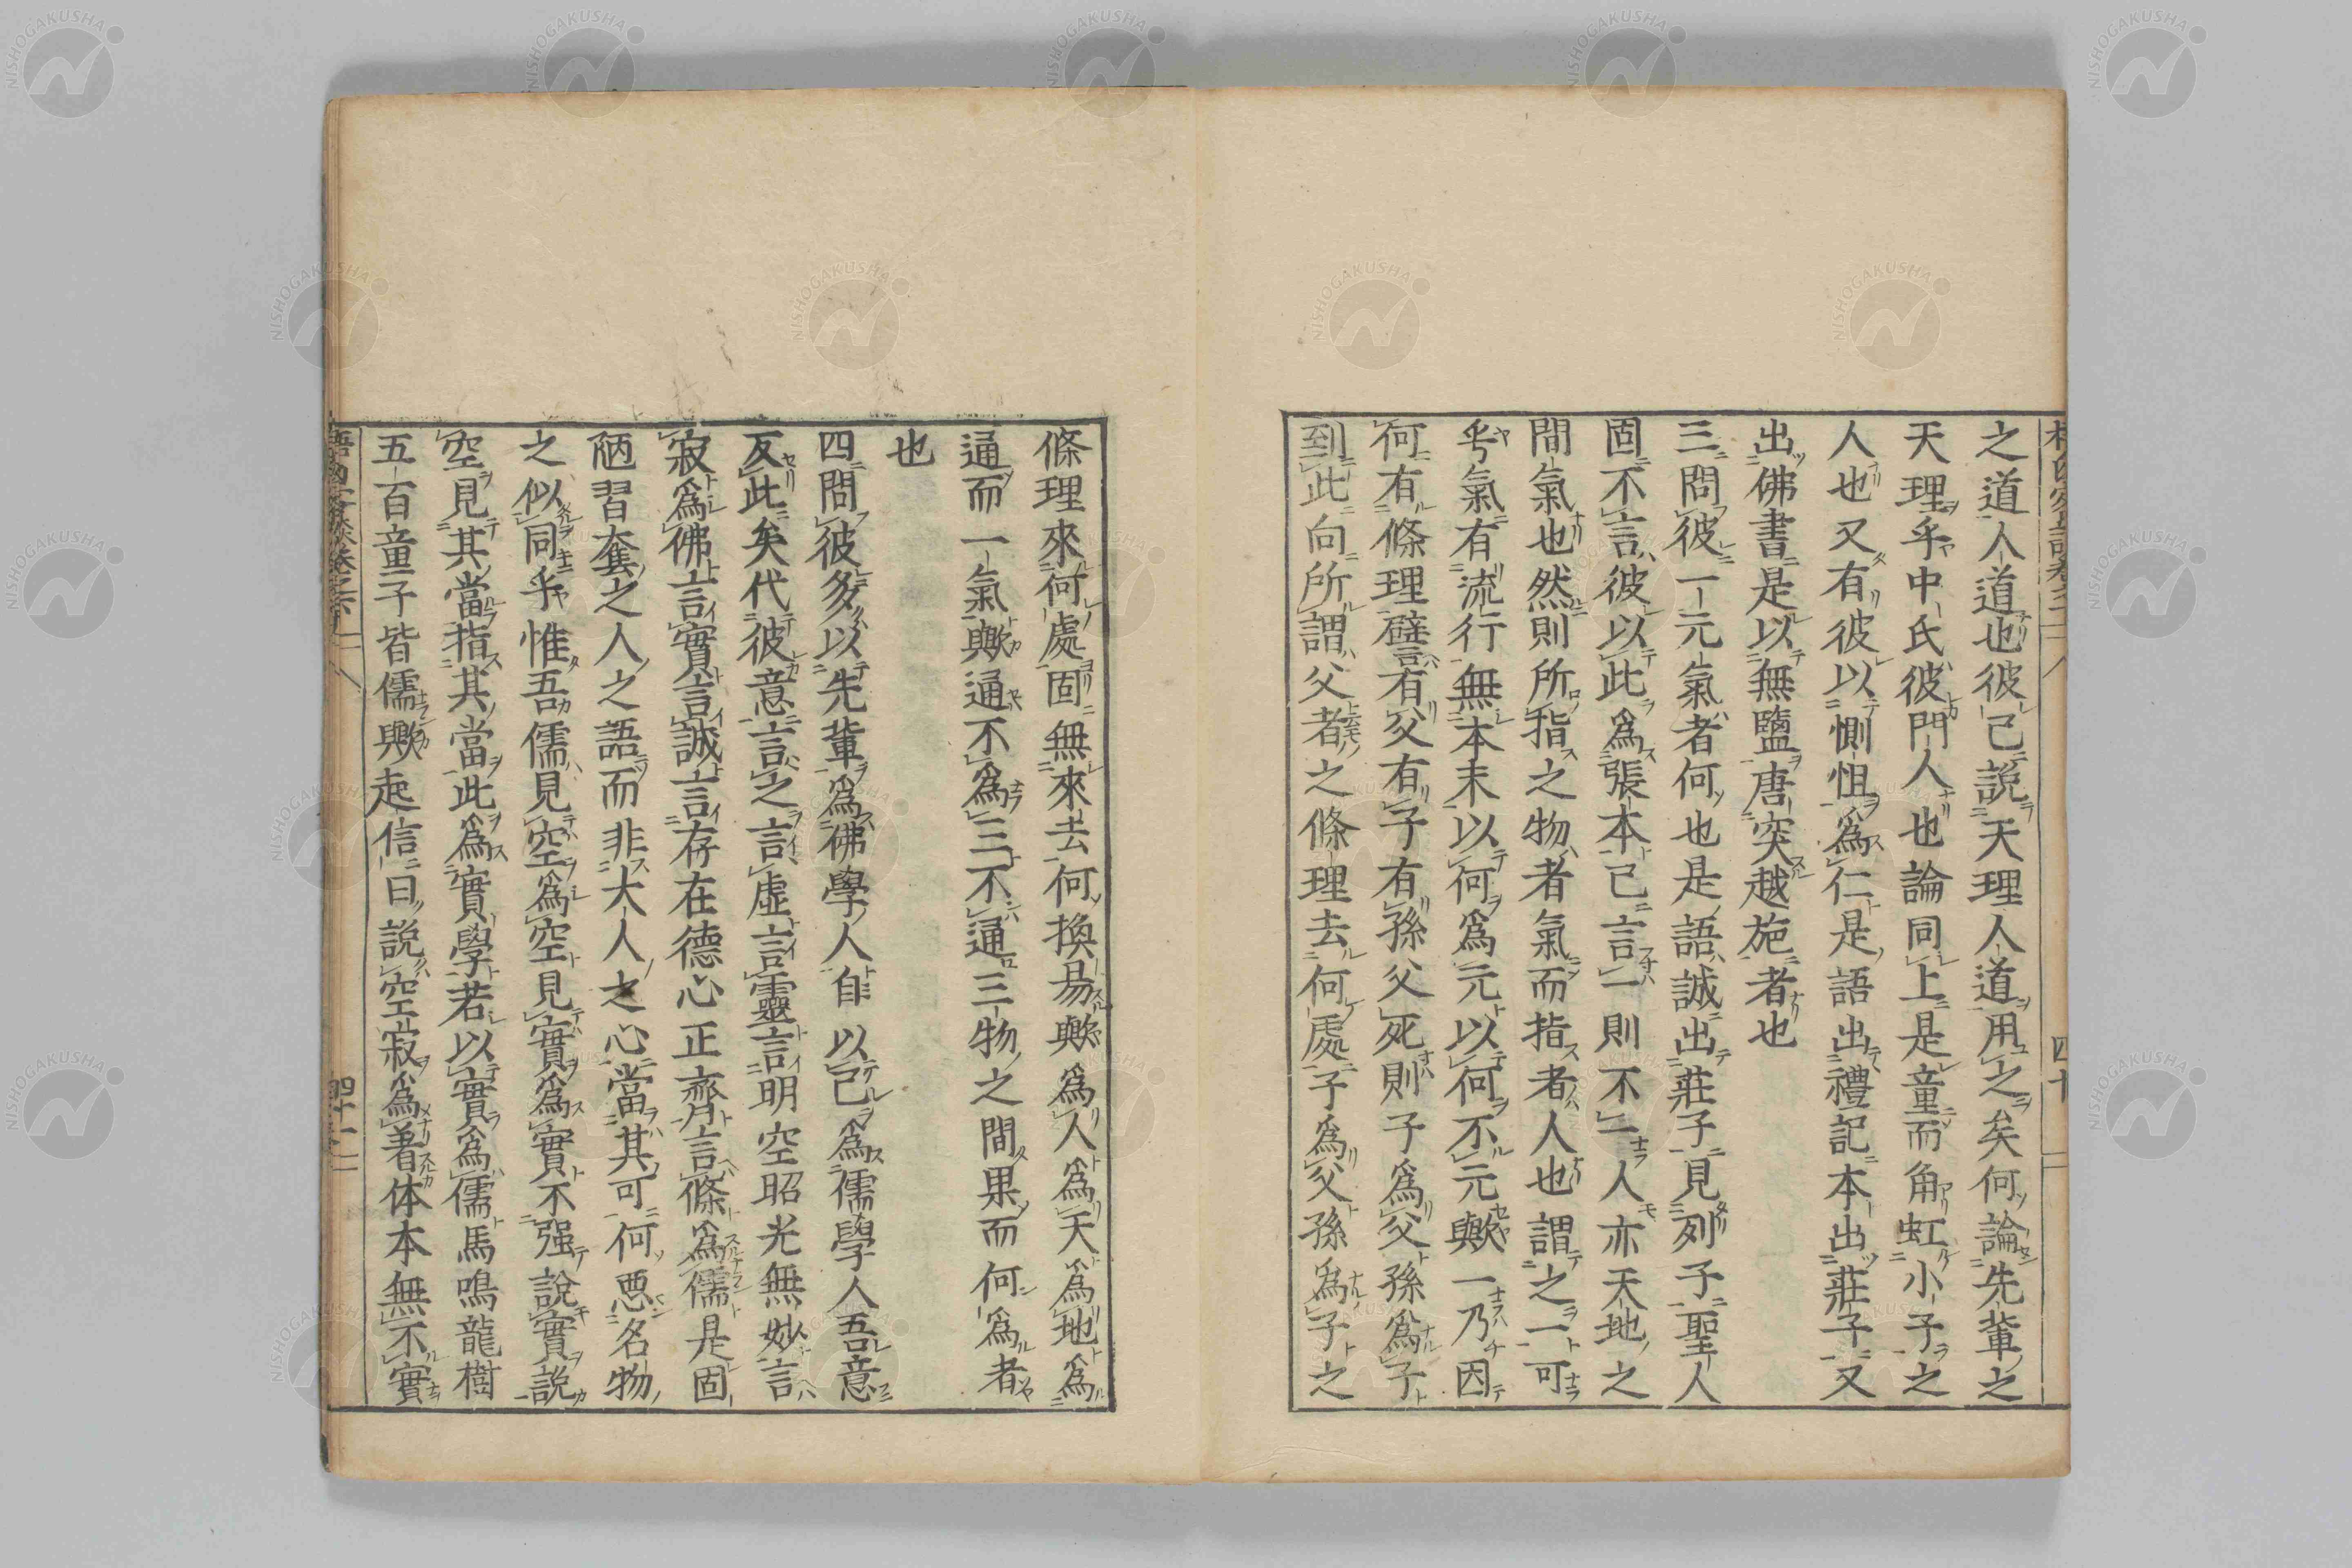 之道人道也彼已說天理人道用之矣何論先輩之
天理乎中氏彼門人也論同上是童而角虹小子之
人也又有彼以惻怛爲仁是語出禮記本出莊子又
出佛書是以無鹽唐突越施者也
三問彼一元氣者何也是語誠出莊子見列子聖人
固不言彼以此爲張本已言一則不二人亦天地之
間氣也然則所指之物者氣而指者人也謂之一可
乎氣有流行無本末以何爲元以何不元歟一乃因
何有條理譬言有父有子有孫父死則子爲父孫爲子
到此向所謂父者之條理去何處子爲父孫爲子之
條理來何處固無來去何換易歟爲人爲天爲地爲
通而一氣歟通不爲三不通三物之間果而何爲者
也
四問彼多以先輩爲佛學人自以己爲儒學人吾意
反此矣代彼意言之言虛言靈言明空昭光無妙言
寂爲佛言實言誠言存在德心正齊言條爲儒是固
陋習奮之人之語而非大人之心當其可何惡名物
之似同乎惟吾儒見空爲空見實爲實不强說實說
空見其當指其當此爲實學若以實爲儒馬鳴龍樹
五百童子皆儒歟起信曰說空寂爲著体本無不實